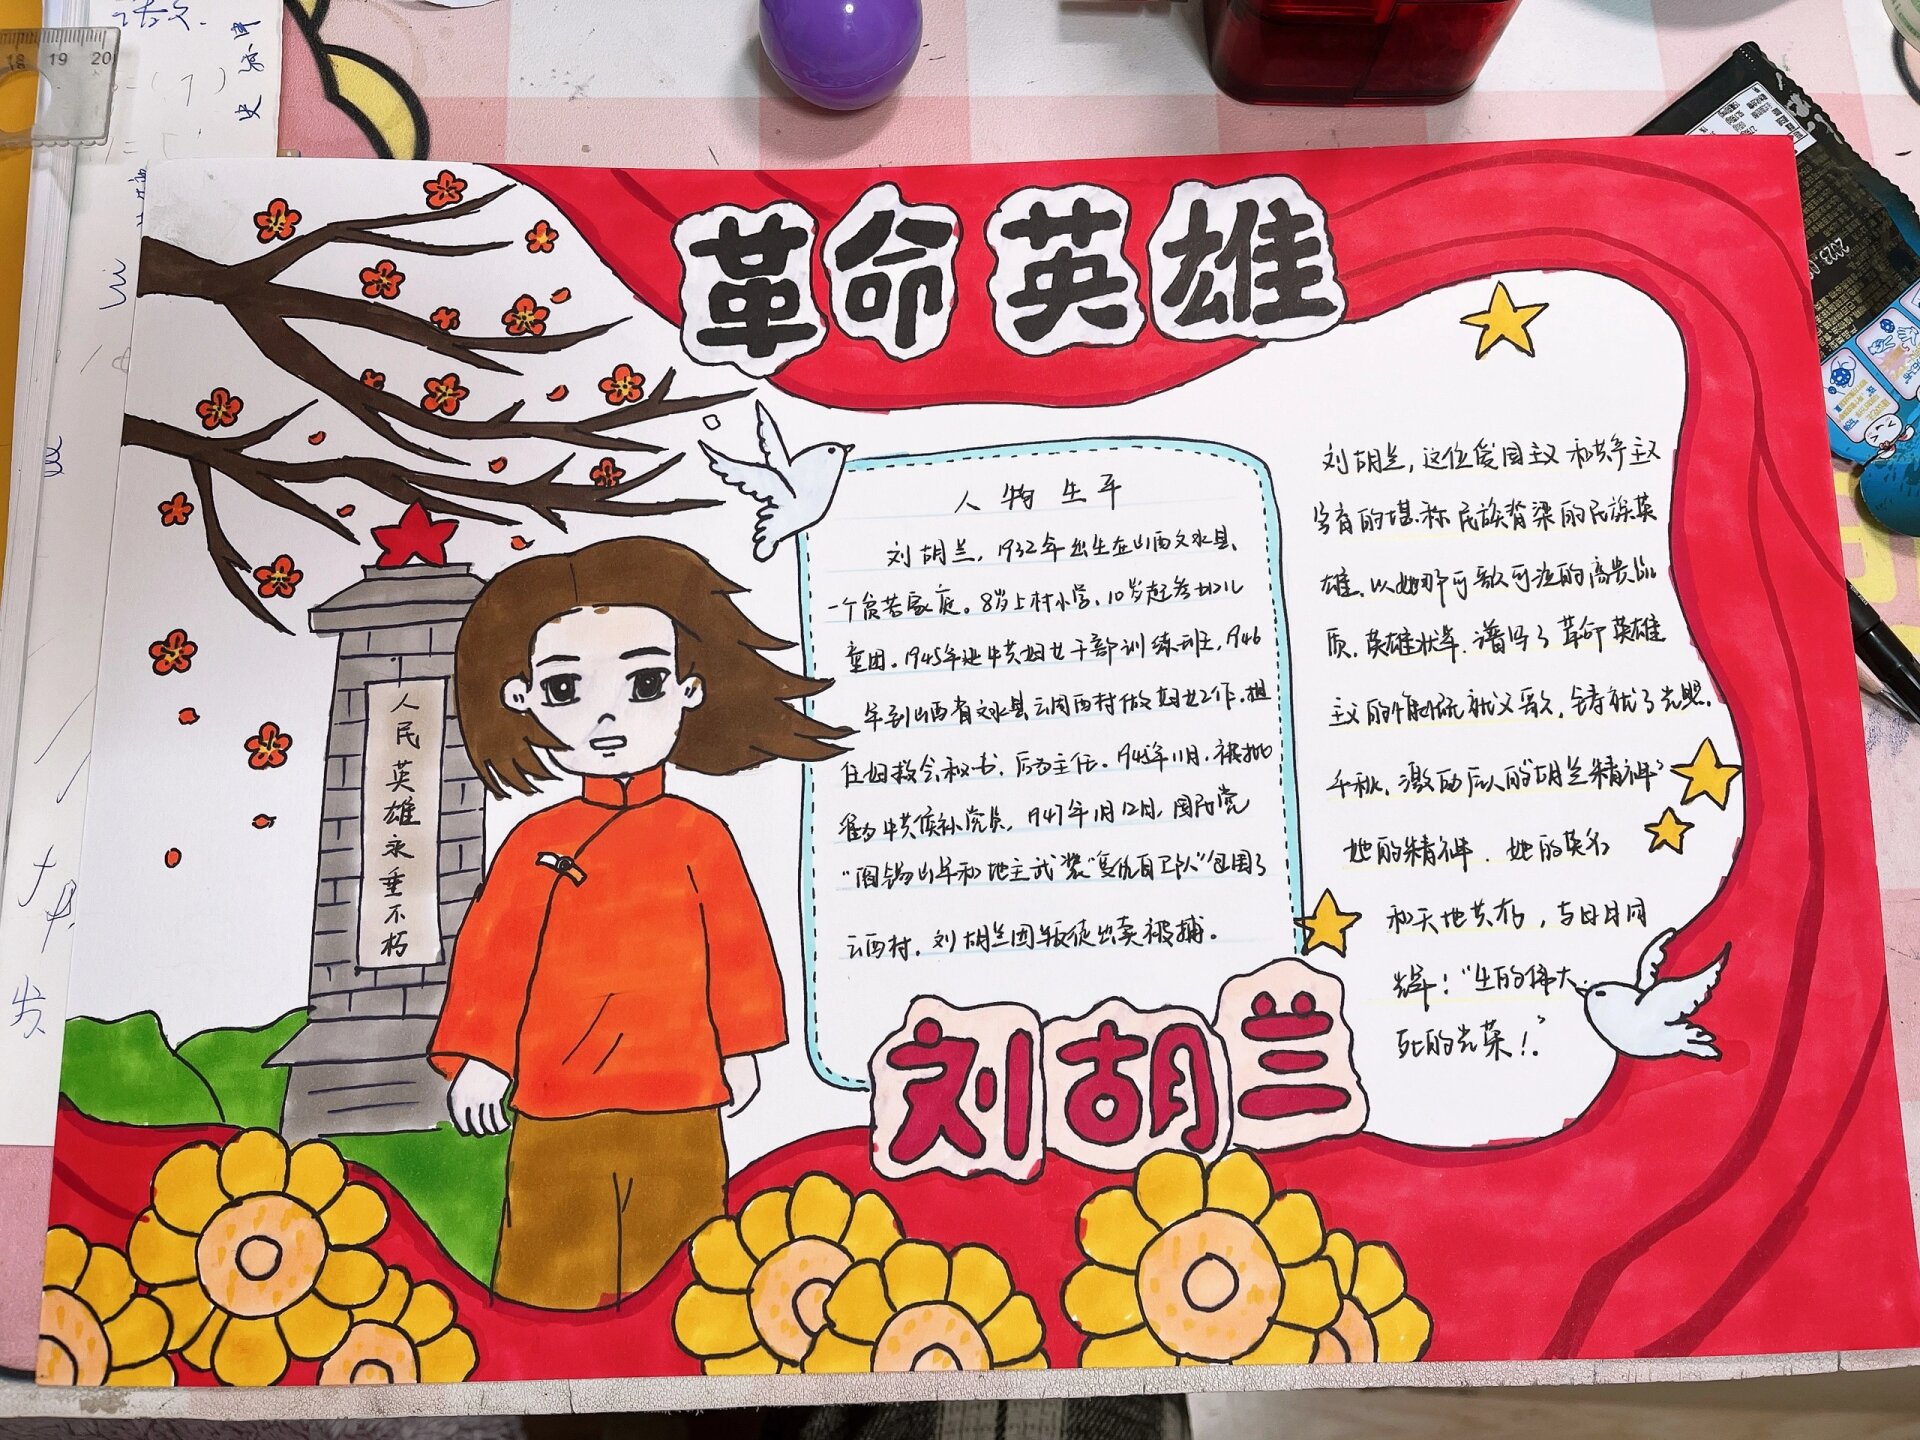 革命英雄
人民英雄永垂不朽
人物生平
刘胡兰，1932年出生在山西文水县、
一个贫苦家庭。8岁上村小学，10岁起参加儿
童团。1945年进中共妇女干部训练班，1946
年到山西省文水县云周西村做妇女工作，担
任妇救会秘书，后为主任。1945年11月，被批
为中共候补党员，1947年1月12日，国民党
“阎锡山军和地主武装“复仇自卫队”包围了
云西村，刘胡兰因叛徒出卖被捕。
刘胡兰
刘胡兰，这位爱国主义和共产主义
孕育的堪称民族脊梁的民族英
雄，以她那可歌可泣的高贵品
质，英雄壮举，谱写了革命英雄
主义的 就义歌，铸就了光照
千秋，激励后人的“胡兰精神”
她的精神，她的英名
和天地共存，与日月同
辉！“生的伟大，
死的光荣！”
18 19 20